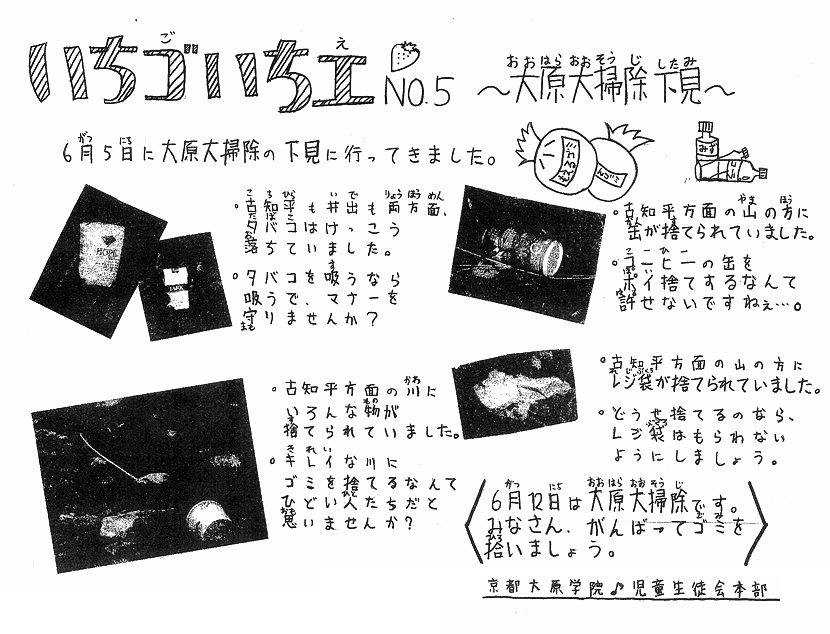 いちゴいちエ NO.5 〜大原大掃除下見〜
6月5日に大原大掃除の下見に行ってきました。
。古知平も井出も両方面、
タバコはけっこう
落ちていました。
。タバコを吸うなら
吸うで、マナーを
守りませんか?
。古知平方面の山の方に
缶が捨てられていました。
。コーヒーの缶を
ポイ捨てするなんて
許せないですねぇ…。
。古知平方面の川に
いろんな物が
捨てられていました。
。キレイな川に
ゴミを捨てるなんて
ひどい人たちだと
思いませんか?
。古知平方面の山の方に
レジ袋が捨てられていました。
。どうせ捨てるのなら、
レジ袋はもらわない
ようにしましょう。
6月12日は大原大掃除です。
みなさん、がんばってゴミを
拾いましょう。
京都大原学院♪児童生徒会本部